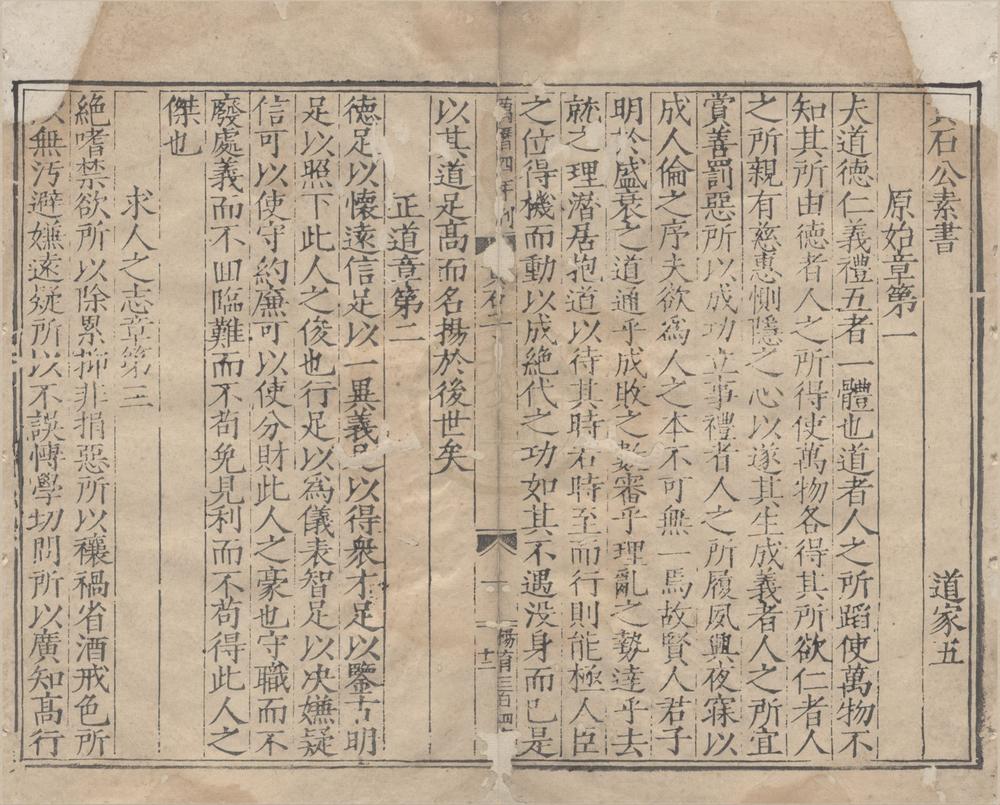 石公素書 道家五
原始章第一
夫道德仁義禮五者一體也道者人之所蹈使萬物不
知其所由德者人之所得使萬物各得其所欲仁者人
之所親有慈惠惻隱之心以遂其生成義者人之所宜
賞善罰惡所以成功立事禮者人之所履夙興夜寐以
成人倫之序夫欲為人之本不可無一焉故賢人君子
明於盛衰之道通乎成敗之數審乎理亂之勢達乎去
就之理潜居抱道以待其時若時至而行則能極人臣
之位得機而動以成絶代之功如其不遇没身而已是
萬曆四年刊 二 一 楊有三百四 十二
以其道足髙而名揚於後世矣
正道章第二
德足以懷遠信足以一異義足以得衆才足以鑒古明
足以照下此人之俊也行足以為儀表智足以决嫌疑
信可以使守約廉可以使分財此人之豪也守職而不
廢處義而不囬臨難而不苟免見利而不苟得此人之
傑也
求人之志章第三
絶嗜禁欲所以除累抑非損惡所以禳禍省酒戒色所
以無汚避嫌遠疑所以不誤愽學切問所以廣知髙行